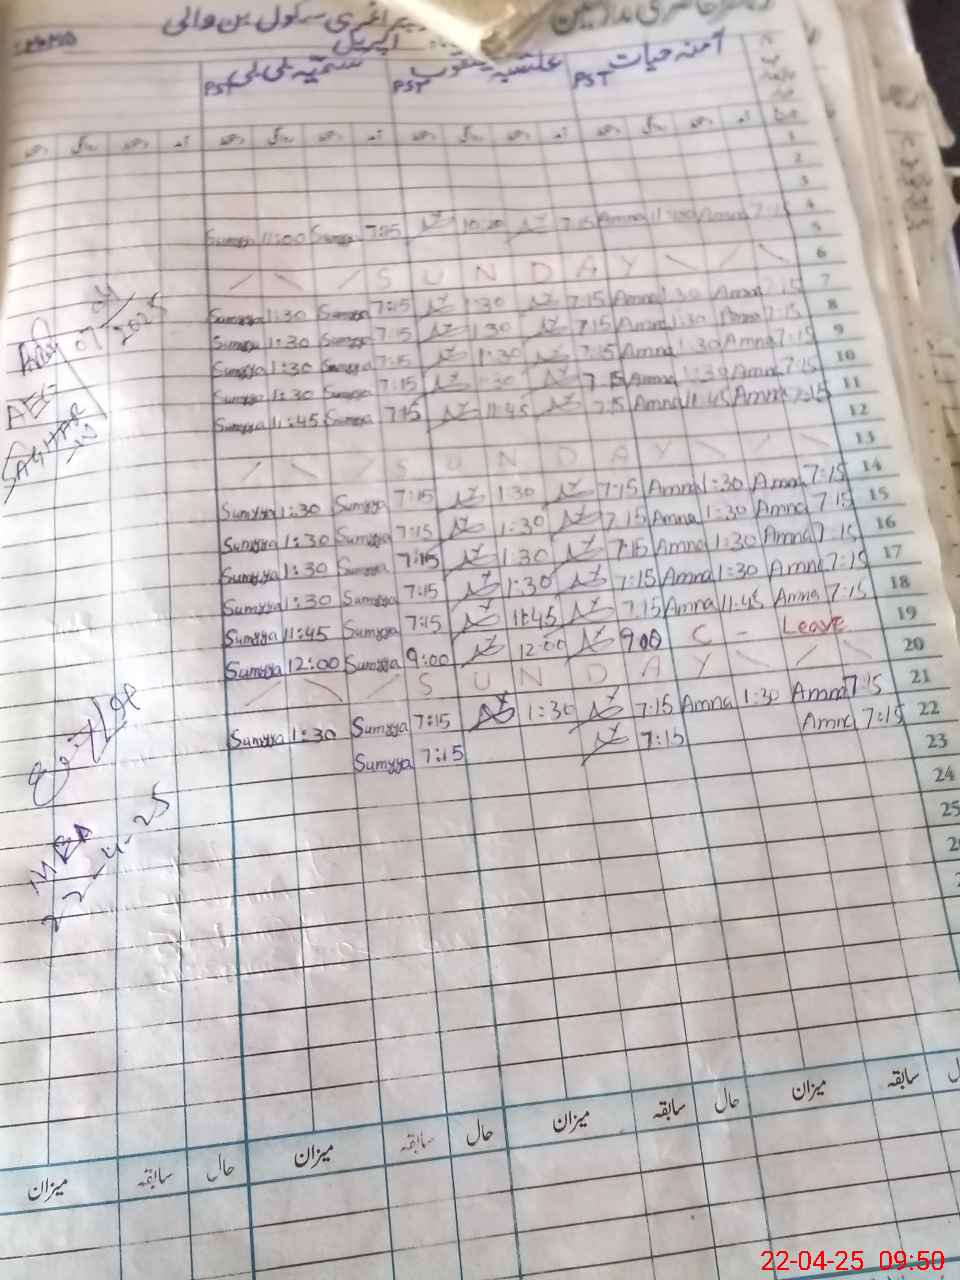 پرائمری سکول بن والی
اپریل
آمنہ حیات PST
PST
سمیہ بی بی PST
آمد دستخط روانگی دستخط آمد دستخط روانگی دستخط آمد دستخط روانگی دستخط
1
2
3
4
5 7:15 Amna 11:00 Amna 7:15 10:30 7:15 Sumyya 11:00 Sumyya
6 S U N D A Y
7 7:15 Amna 1:30 Amna 7:15 1:30 7:15 Sumyya 1:30 Sumyya
8 7:15 Amna 1:30 Amna 7:15 1:30 7:15 Sumyya 1:30 Sumyya
9 7:15 Amna 1:30 Amna 7:15 1:30 7:15 Sumyya 1:30 Sumyya
10 7:15 Amna 1:30 Amna 7:15 1:30 7:15 Sumyya 1:30 Sumyya
11 7:15 Amna 11:45 Amna 7:15 11:45 7:15 Sumyya 11:45 Sumyya
12
13 S U N D A Y
14 7:15 Amna 1:30 Amna 7:15 1:30 7:15 Sumyya 1:30 Sumyya
15 7:15 Amna 1:30 Amna 7:15 1:30 7:15 Sumyya 1:30 Sumyya
16 7:15 Amna 1:30 Amna 7:15 1:30 7:15 Sumyya 1:30 Sumyya
17 7:15 Amna 1:30 Amna 7:15 1:30 7:15 Sumyya 1:30 Sumyya
18 7:15 Amna 11:45 Amna 7:15 11:45 7:15 Sumyya 11:45 Sumyya
19 Leave - C 9:00 12:00 9:00 Sumyya 12:00 Sumyya
20 S U N D A Y
21 7:15 Amna 1:30 Amna 7:15 1:30 7:15 Sumyya 1:30 Sumyya
22 7:15 Amna 7:15 7:15 Sumyya
23
24
25
07/04/2025
AEO
MEA
22-4-25
حال سابقہ میزان حال سابقہ میزان حال سابقہ میزان حال سابقہ میزان
22-04-25 09:50